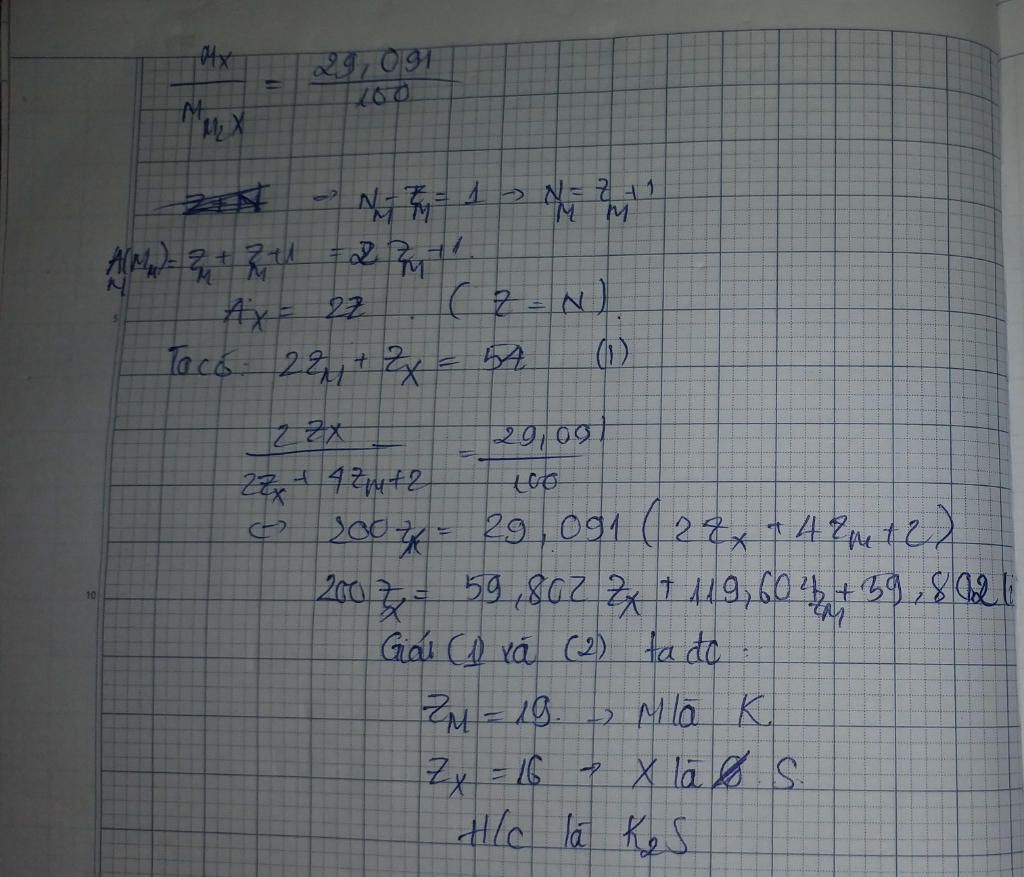 Mx / M_M₂X = 29,091 / 100
→ N_M - Z_M = 1 → N_M = Z_M + 1
A_M(M_M) = Z_M + Z_M + 1 = 2 Z_M + 1.
A_X = 2Z . ( Z = N ).
Ta có: 2Z_M + Z_X = 54 (1)
2Zx / 2Z_X + 4Z_M + 2 = 29,091 / 100
⇔ 200 Z_X = 29,091 ( 2Z_X + 4Z_M + 2 )
10
200 Z_X = 59,802 Z_X + 119,604 Z_M + 59,802
Giải (1) và (2) ta đc :
Z_M = 19. → M là K.
Z_X = 16 → X là S.
H/c là K₂S